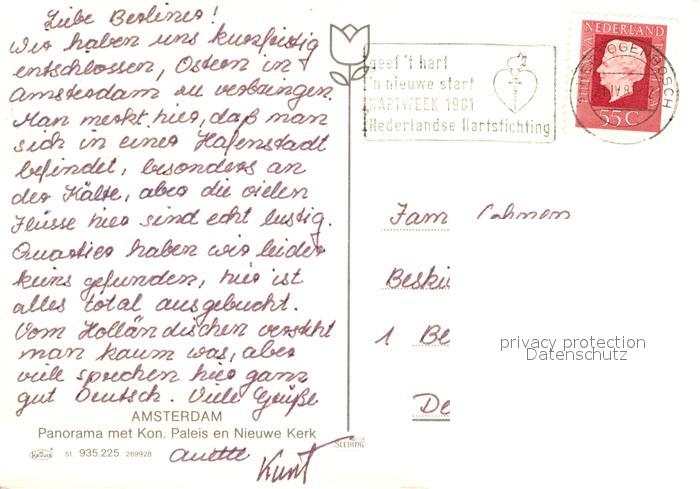 Liebe Berliner!
Wir haben uns kurzfristig
entschlossen, Ostern in
Amsterdam zu verbringen.
Man merkt hier, daß man
sich in einer Hafenstadt
befindet, besonders an
der Kälte, aber die vielen
Flüsse hier sind echt lustig.
Quartier haben wir leider
keins gefunden, hier ist
alles total ausgebucht.
Vom Holländischen versteht
man kaum was, aber
viele sprechen hier ganz
gut Deutsch. Viele Grüße
Anette
Kurt
AMSTERDAM
Panorama met Kon. Paleis en Nieuwe Kerk
KRÜGER St. 935.225 269928
SLEDING
geef 't hart
'n nieuwe start
HARTWEEK 1981
Nederlandse Hartstichting
NEDERLAND
55 C
Fam.
Beski
1 Be
De
privacy protection
Datenschutz